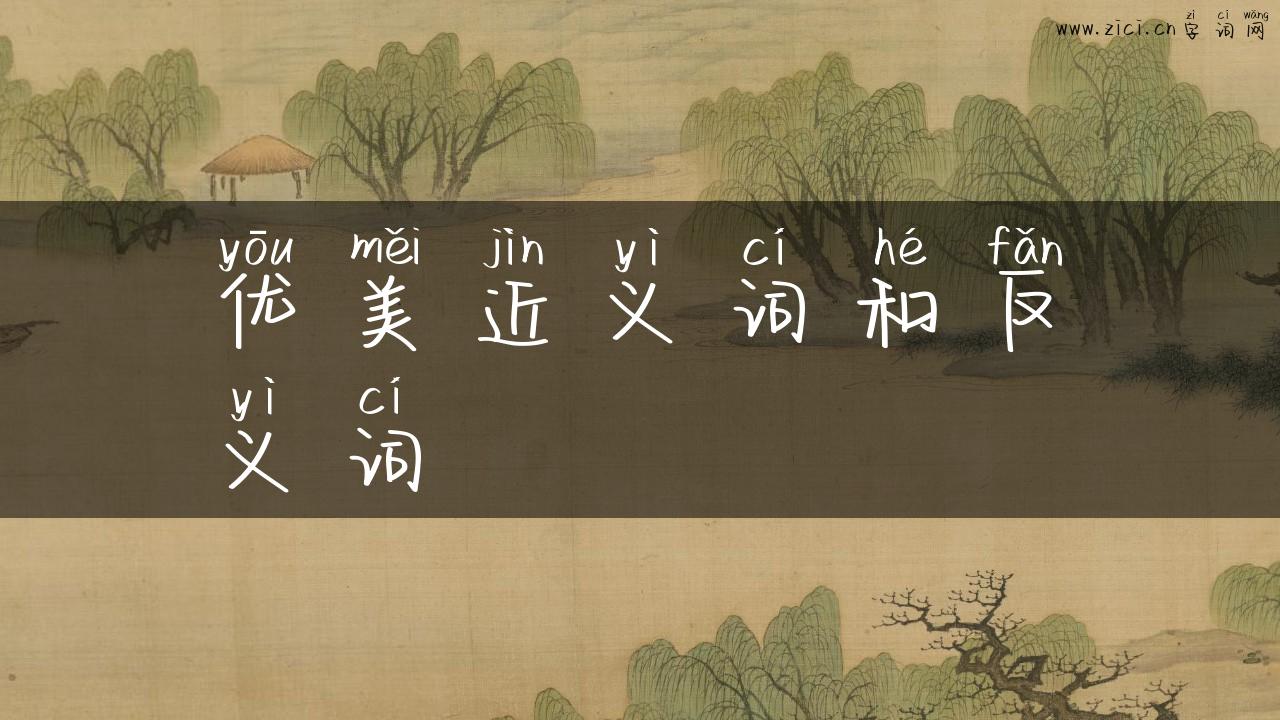 zì cí wǎng
www.zici.cn 字词网
yōu měi jìn yì cí hé fǎn
优美近义词和反
yì cí
义词